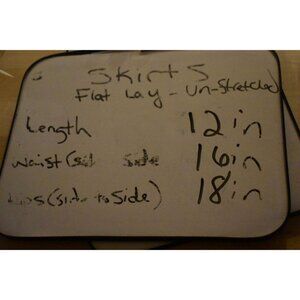 Skirts
Flat Lay - Un-Stretched
Length 12in
waist (sid side 16in
(side to Side) 18in